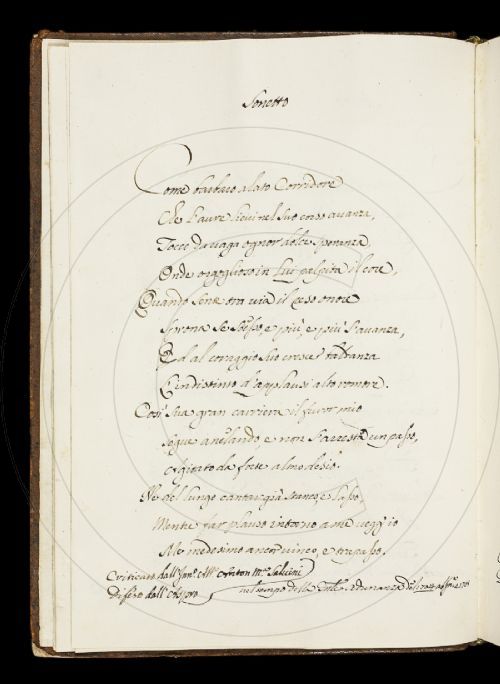 Sonetto
Come barbaro alato Corridore
Che l'aure lievi nel suo corso avanza,
Tocco da vaga ognor dolce speranza,
Onde orgoglioso in Lui palpita il core,
Quando sente tra via il preso onore
Sprona se stesso, e più, e più s'avanza,
Ed al coraggio suo cresce baldanza
L'indistinto d'applausi alto romore.
Così sua gran carriera il furor mio
Segue anelando, e non s'arresta un passo,
Agitato da forte almo desio.
Nè del lungo cantar già stanco, e lasso,
Mentre far plauso intorno a me vegg'io
Me medesimo ancor vinco, e trapasso.
Criticato dall' Anton M.ª Salvini
Difeso dall'
nel tempo della Adunanza